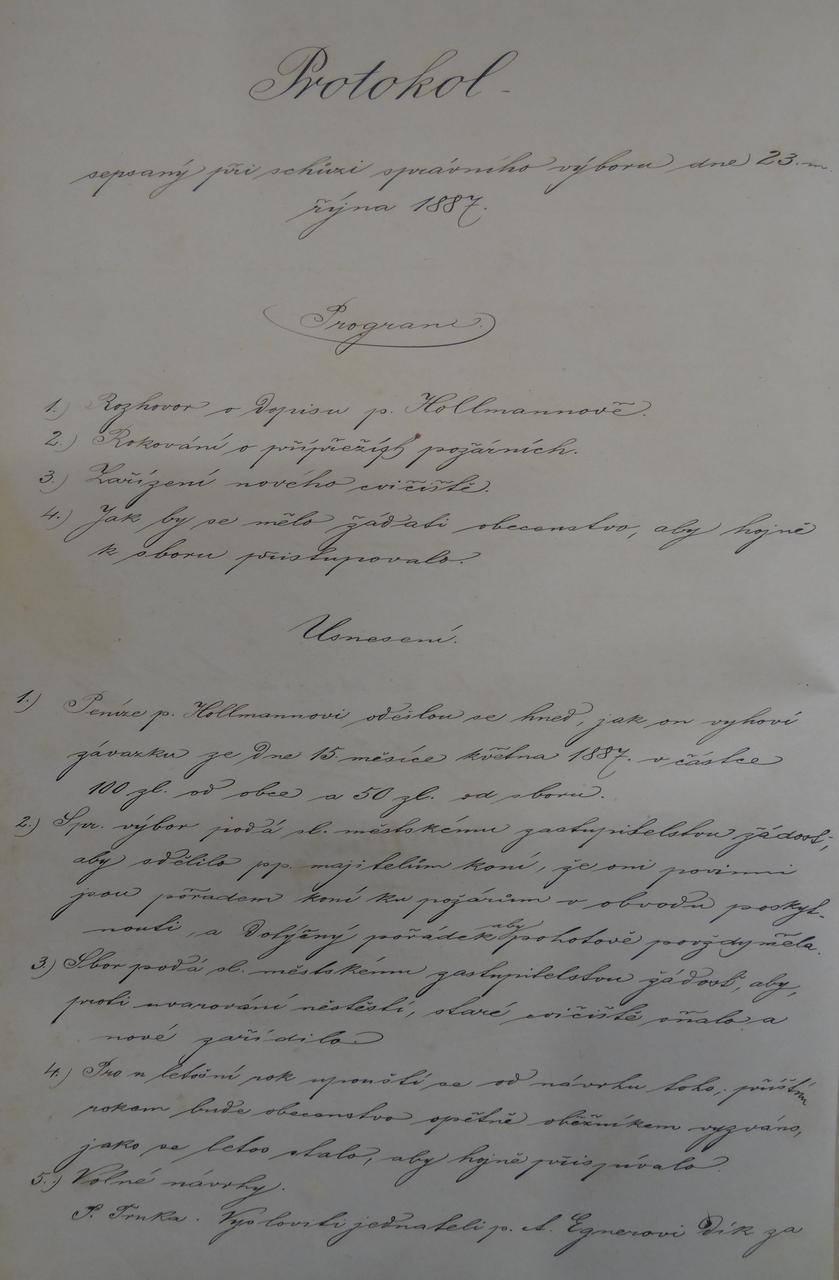 Protokol
sepsaný při schůzi správního výboru dne 23.m.
října 1887.
Program.
1.) Rozhovor o dopisu p. Hollmannově.
2.) Rokování o přípřežích požárních.
3.) Zařízení nového cvičiště.
4.) Jak by se mělo žádati obecenstvo, aby hojně
k sboru přistupovalo.
Usnesení.
1.) Peníze p. Hollmannovi odešlou se hned, jak on vyhoví
závazku ze dne 15 měsíce května 1887. v částce
100 zl. od obce a 50 zl. od sboru.
2.) Spr. výbor podá sl. městskému zastupitelstvu žádost,
aby sdělilo pp. majitelům koní, že oni povinni
jsou pořadem koní ku požárům v obvodu poskyt-
nouti, a dotyčný pořádek aby pohotově povždy měla.
3.) Sbor podá sl. městskému zastupitelstvu žádost, aby,
proti uvarování neštěstí, staré cvičiště sňalo a
nové zařídilo.
4.) Pro letošní rok upouští se od návrhu toho; příštím
rokem bude obecenstvo opětně oběžníkem vyzváno,
jako se letos stalo, aby hojně přispívalo.
5.) Volné návrhy.
P. Trnka. Vysloviti jednateli p. A. Egnerovi dík za